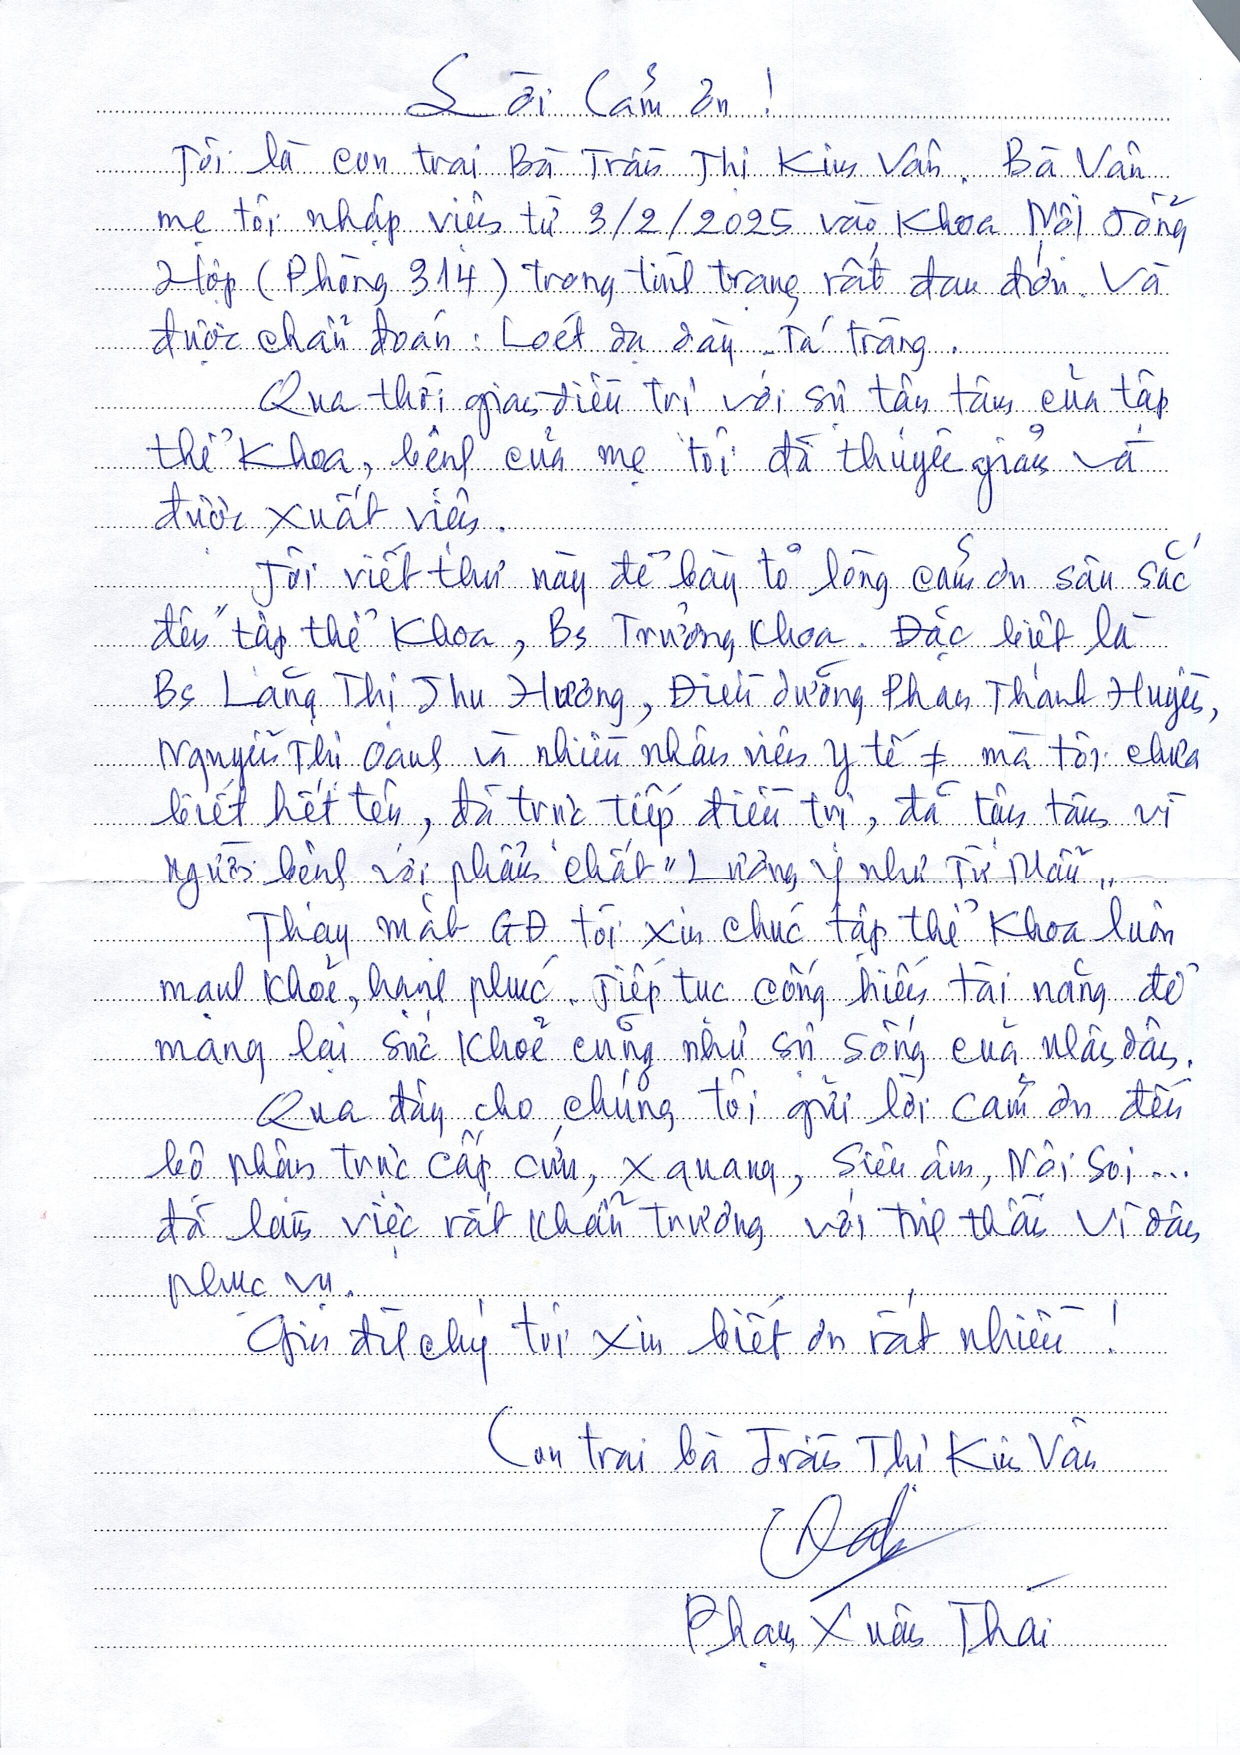 Lời Cảm ơn !
Tôi là con trai Bà Trần Thị Kim Vân. Bà Vân
mẹ tôi nhập viện từ 3/2/2025 vào Khoa Nội Tổng
Hợp (Phòng 314) trong tình trạng rất đau đớn. Và
được chẩn đoán : Loét dạ dày - Tá tràng.
Qua thời gian điều trị với sự tận tâm của tập
thể Khoa, bệnh của mẹ tôi đã thuyên giảm và
được xuất viện.
Tôi viết thư này để bày tỏ lòng cảm ơn sâu sắc
đến tập thể Khoa, Bs Trưởng Khoa. Đặc biệt là
Bs Lăng Thị Thu Hương, Điều dưỡng Phan Thanh Huyền,
Nguyễn Thị Oanh và nhiều nhân viên y tế ≠ mà tôi chưa
biết hết tên, đã trực tiếp điều trị, đã tận tâm vì
người bệnh với phẩm chất "Lương y như Từ Mẫu".
Thay mặt GĐ tôi xin chúc tập thể Khoa luôn
mạnh khoẻ, hạnh phúc. Tiếp tục cống hiến tài năng để
mang lại sức khoẻ cũng như sự sống của nhân dân.
Qua đây cho chúng tôi gửi lời cảm ơn đến
bộ phận trực cấp cứu, X quang, Siêu âm, Nội soi...
đã làm việc rất khẩn trương với tinh thần Vì dân
phục vụ.
Gia đình chúng tôi xin biết ơn rất nhiều !
Con trai bà Trần Thị Kim Vân
Phạm Xuân Thái